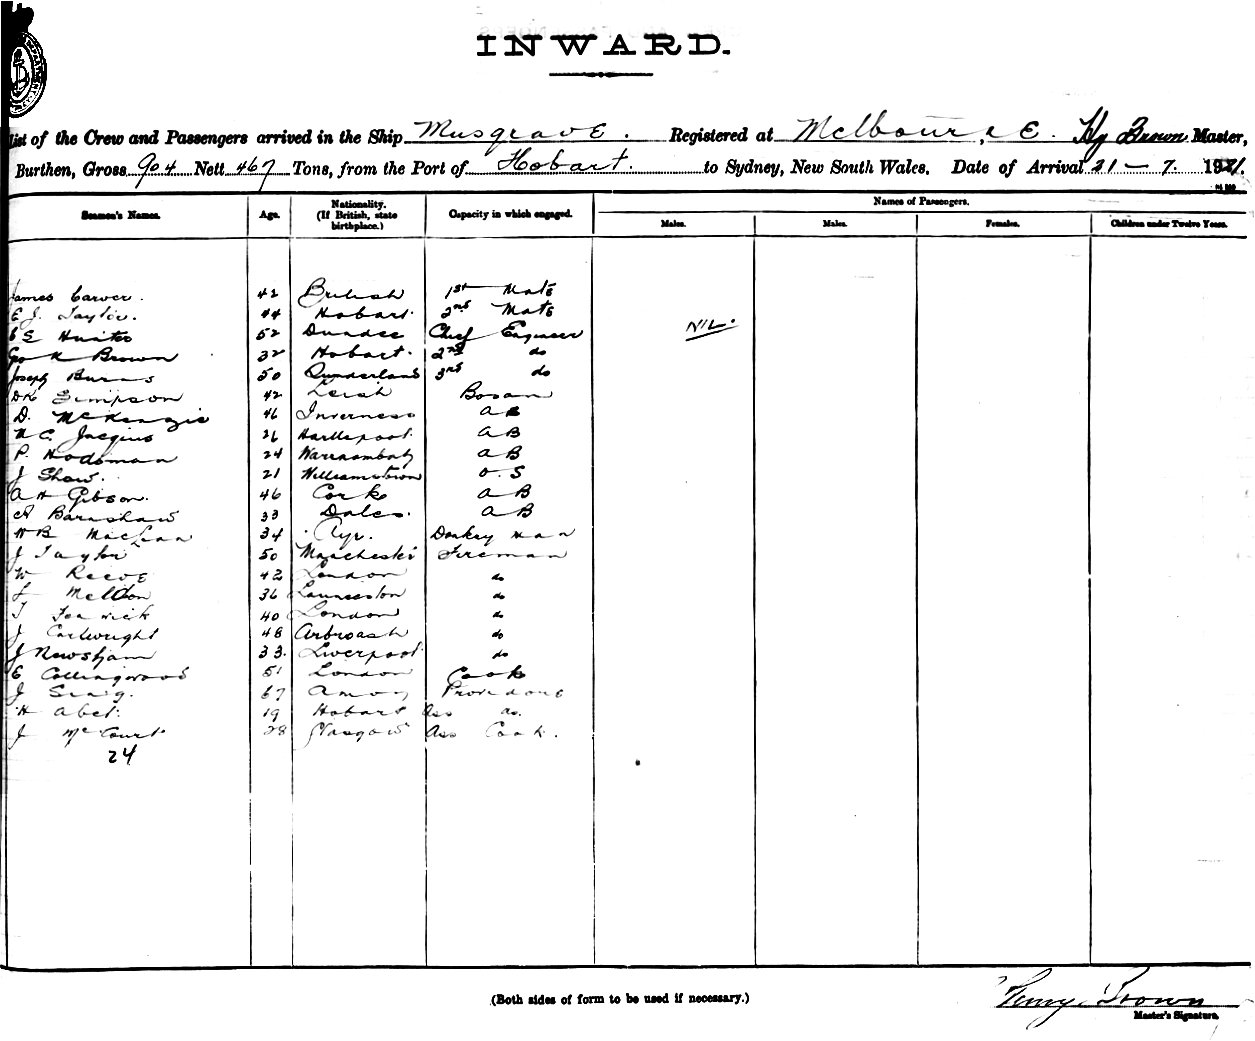 INWARD.
List of the Crew and Passengers arrived in the Ship Musgrave. Registered at Melbourne. Hy Brown Master,
Burthen, Gross 904 Nett 467 Tons, from the Port of Hobart. to Sydney, New South Wales. Date of Arrival 21 - 7. 1921.
Seamen's Names. Age. Nationality. (If British, state birthplace.) Capacity in which engaged. Names of Passengers.
Males. Males. Females. Children under Twelve Years.
James Carver. 42 British 1st Mate
E J. Taylor. 44 Hobart. 2nd Mate
Hunter 52 Dundee Chief Engineer NIL.
Geo H Brown 32 Hobart. 2nd do
Joseph Burns 50 Sunderland 3rd do
Simpson 42 Leith Bosun
D. McKenzie 46 Inverness AB
C. Jacquis 26 Hartlepool. AB
P. Hodsman 24 Warrnambool AB
J Shaw. 21 Williamstown O.S
A H Gibson. 46 Cork AB
A Barnshaw 33 Dales. AB
W B MacLean 34 Ayr. Donkey man
J Taylor 50 Manchester Fireman
W Reeve 42 London do
Melton 36 Launceston do
T Fenwick 40 London do
J Cartwright 48 Arbroath do
J Newsham 33. Liverpool do
E Collingwood 51 London Cook
J 67 Amoy Providore
H Abel. 19 Hobart Ass do.
J McCourt 28 Glasgow Ass Cook.
24
(Both sides of form to be used if necessary.) Henry Brown
Master's Signature.